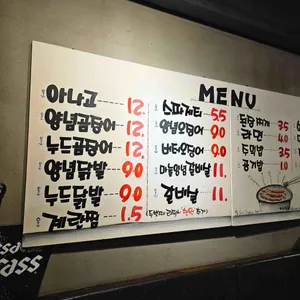 MENU
아나고 12.
양념곰장어 12.
누드곰장어 12.
양념닭발 9.0
누드닭발 9.0
계란찜 1.5
스파게티 5.5
양념오징어 9.0
버터오징어 9.0
마늘양념갈비살 11.
갈비살 11.
된장찌개 3.5
라면 4.0
도시락 3.5
공기밥 1.0